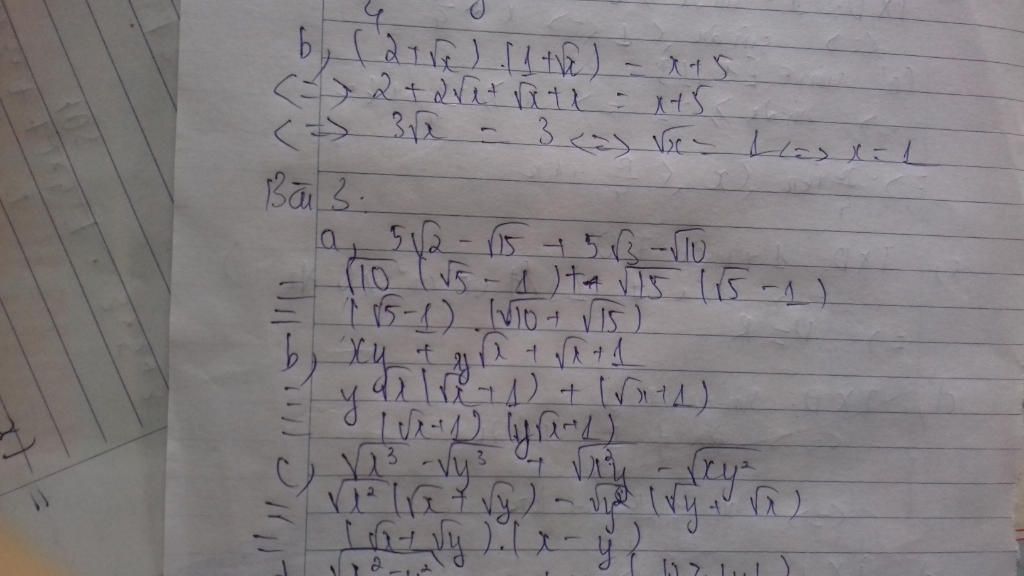 b, (2+√x).(1+√x) = x+5
<=> 2+2√x+√x+x = x+5
<=> 3√x = 3 <=> √x = 1 <=> x = 1
Bài 3:
a, 5√2 - √15 + 5√3 - √10
= √10 (√5 - 1) + √15 (√5 - 1)
= (√5-1).(√10 + √15)
b, xy + y√x + √x + 1
= y√x(√x+1) + (√x+1)
= (√x+1) (y√x+1)
c, √x³ - √y³ + √x²y - √xy²
= √x² (√x + √y) - √y² (√y + √x)
= (√x + √y).(x - y)